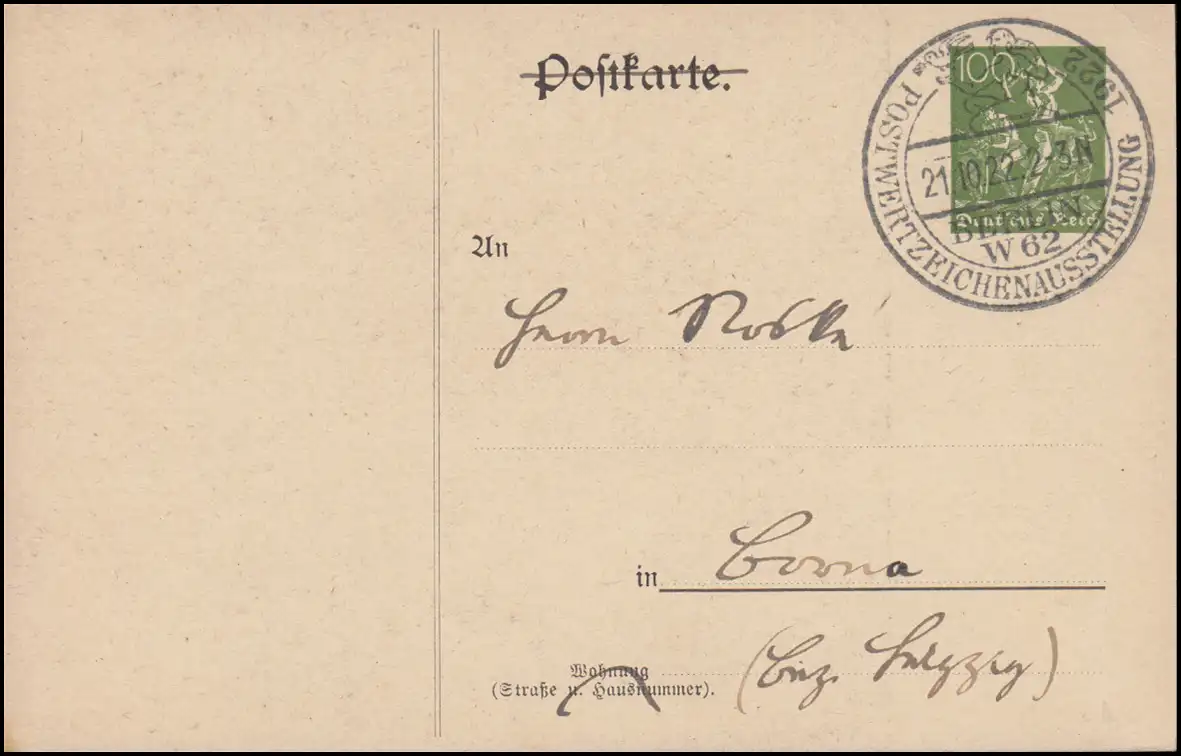 Postkarte.
100
Deutsches Reich
POSTWERTZEICHENAUSSTELLUNG 1922
21.10.22. 2-3N
BERLIN
W 62
An
Herrn Roske
in Borna
(Bez. Leipzig)
Wohnung
(Straße u. Hausnummer).